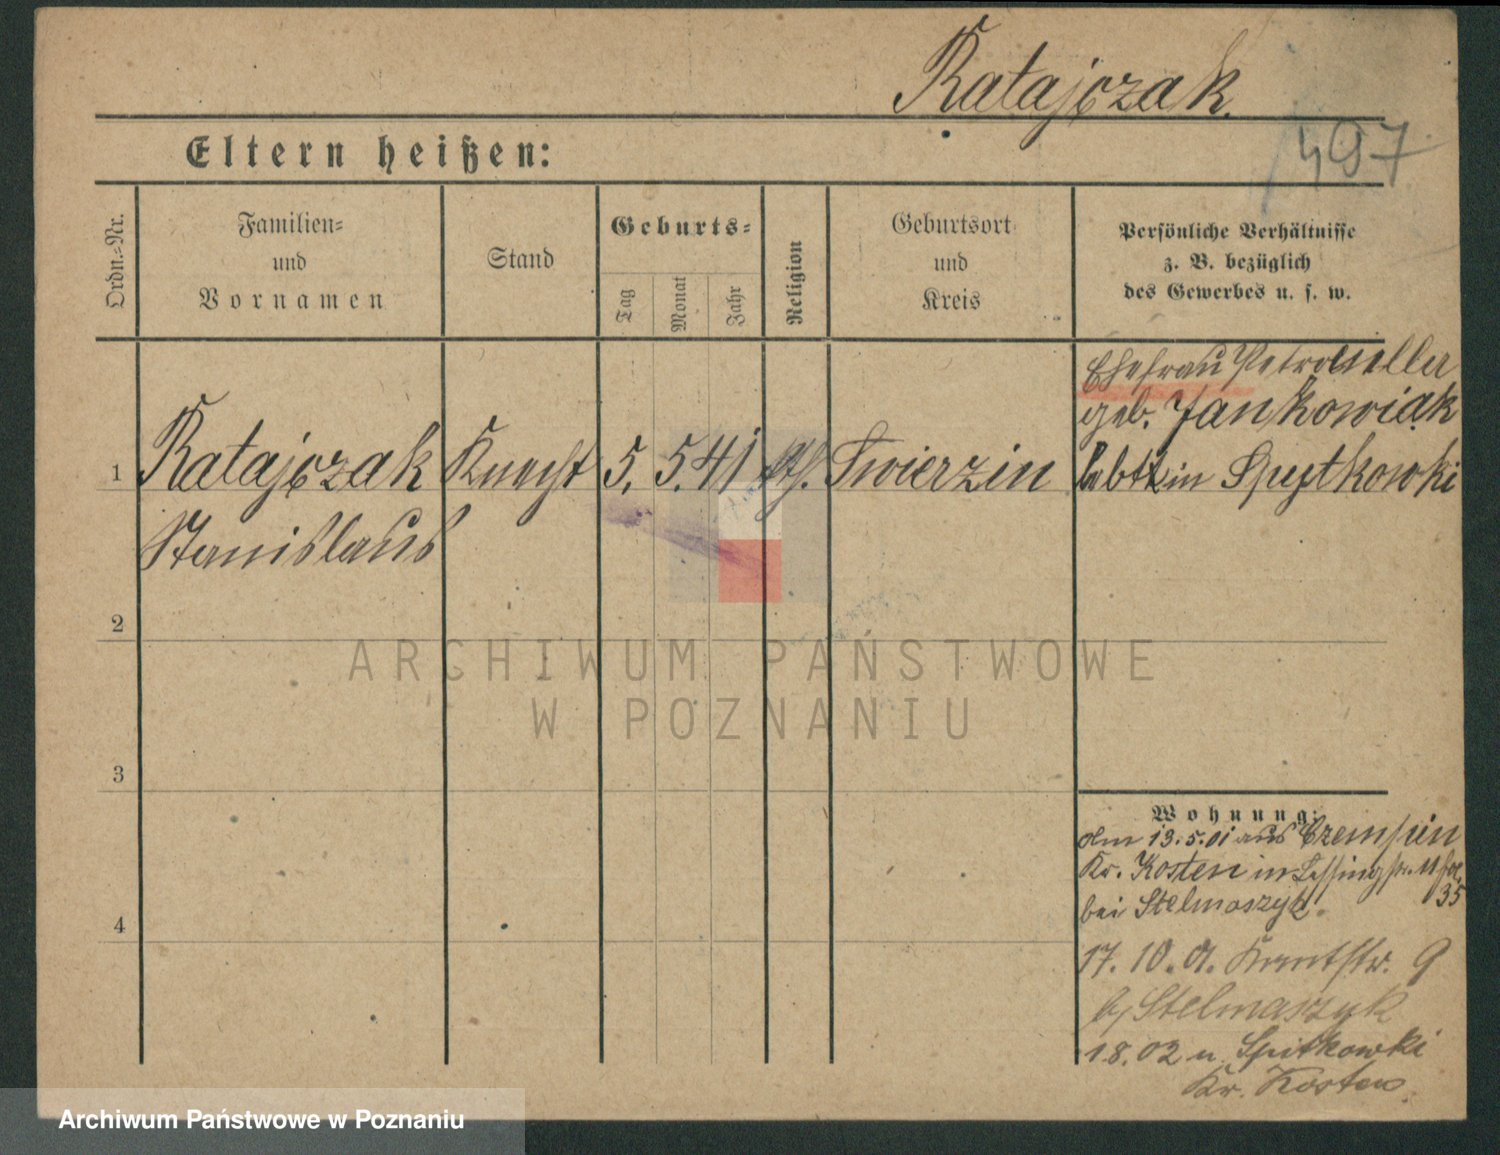 Ratajczak.
497
Eltern heißen:
Ordn.-Nr.
Familien-
und
Vornamen
Stand
Geburts-
Tag
Monat
Jahr
Religion
Geburtsort
und
Kreis
Persönliche Verhältnisse
z. B. bezüglich
des Gewerbes u. s. w.
Ehefrau
geb. Jankowiak
1 Ratajczak Knecht 5. 5. 41 kth. Twierzin in Spytkowki
Stanislaus
2
ARCHIWUM PAŃSTWOWE
W POZNANIU
3
Wohnung:
Am 13.5.01 aus Czempin
Kr. Kosten in Lessingstr. 11
35
bei Stelmaszyk.
17. 10. 01. Kantstr. 9
b/ Stelmaszyk
4
1 8. 02 n. Spitkowki
Kr. Kosten.
Archiwum Państwowe w Poznaniu